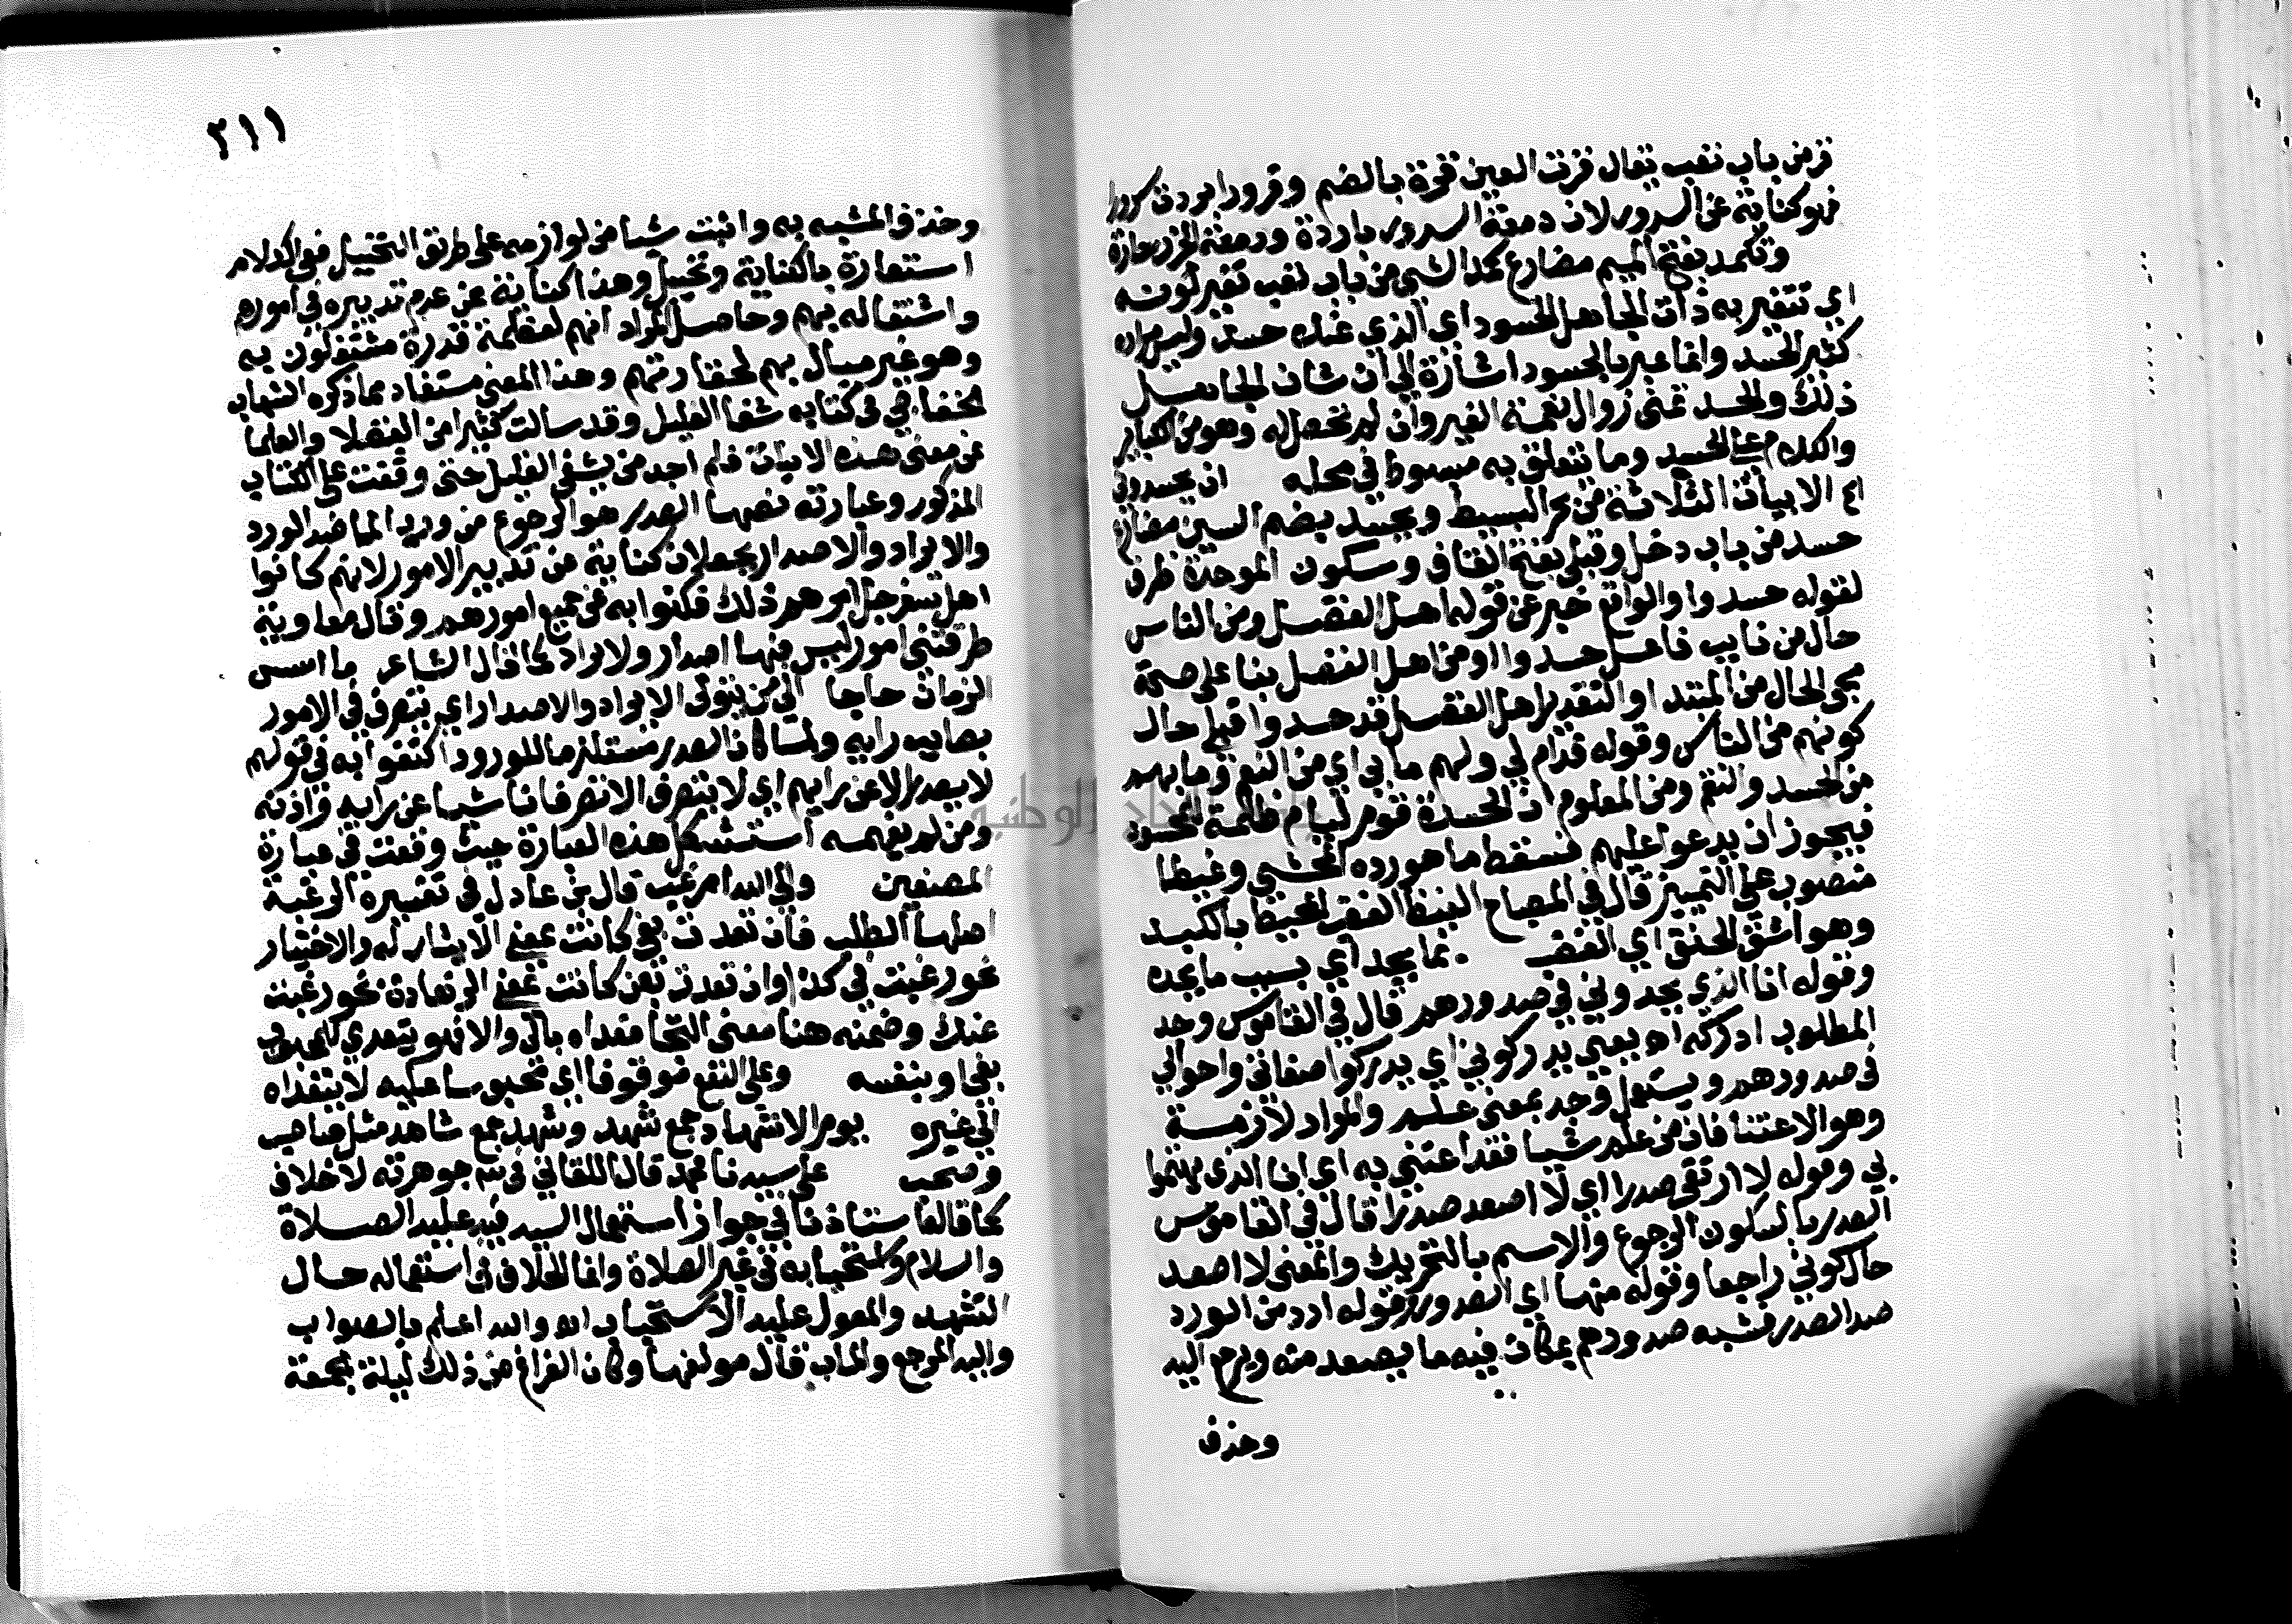 قر من باب تعب يقال قرت العين قرة بالضم وقرورا بردت سرورا
فهو كناية عن السرور لان دمعة السرور باردة ودمعة الحزن حارة
وتكمد بفتح الميم مضارع كمد الشي من باب تعب تغير لونه
اي تتغير به ذات الجاهل الحسود اي الذي عنده حسد وليس مراده
كثير الحسد وانما عبر بالحسود اشارة الي ان شان الجاهل
ذلك والحسد تمني زوال نعمة الغير وان لم تحصل له وهو من الكباير
والكلام على الحسد وما يتعلق به مبسوط في محله ان يحسدوني
الخ الابيات الثلاثة من بحر البسيط ويحسد بضم السين مضارع
حسد من باب دخل وقبلي بفتح القاف وسكون الموحدة ظرف
لقوله حسدوا والواقع خبر عن قوله اهل الفضل ومن الناس
حال من نايب فاعل حسدوا او من اهل الفضل بنا على صحة
مجي الحال من المبتدا والتقدير اهل الفضل قد حسدوا قبلي حال
كونهم من الناس وقوله فدام لي ولهم ما بي اي من النعم وما بهم
من الحسد والنقم ومن المعلوم ان الحسدة قوم ليام ظلمة
فيجوز ان يدعوا عليهم فسقط ما هو رده المحشي وغيظا
منصوب على التمييز قال في المصباح الغيظ الغضب المحيط بالكبد
وهو اشد الحنق اي الغضب بما يجد اي بسبب ما يجده
وقوله انا الذي يجدوني في صدورهم قال في القاموس وجد
المطلوب ادركه اه يعني يدركوني اي يدركوا صفاتي واحوالي
في صدورهم ويستعمل وجد بمعني علم والمراد لازمه
وهو الاعتنا فان من علم شيا فقد اعتني به اي انا الذي يهتموا
بي وقوله لا ارتقي صدرا اي لا اصعد صدرا قال في القاموس
الصدر بالسكون الرجوع والاسم بالتحريك والمعني لا اصعد
حال كوني راجعا وقوله منها اي الصدور وقوله ارد من الورد
ضد الصدر فشبه صدورهم بمكان فيه ما يصعد منه ويرجع اليه
وحذف
٢١١
وحذف المشبه به واثبت شيا من لوازمه على طريق التخييل ففي الكلام
استعارة بالكناية وتخييل وهذا كناية عن عدم تدبيره في امورهم
واشتغاله بهم وحاصل المراد انهم لعظمة قدره مشتغلون به
وهو غير مبال بهم لحقارتهم وهذا المعني مستفاد مما ذكره الشهاب
الخفاجي في كتابه شفا الغليل وقد سالت كثيرا من الفضلا والعلما
عن معنى هذه الابيات فلم اجد من يشفي الغليل حتى وقفت على الكتاب
المذكور وعبارته نصها الصدر هو الرجوع من ورود الما ضد الورد
والايراد والاصدار يجعلان كناية عن تدبير الامور لانهم كانوا
اهل سفر جل امرهم ذلك فكنوا به عن جميع امورهم وقال معاوية
طرقتني امور ليس فيها اصدار ولا ايراد كما قال الشاعر ما امس
الزمان حاجا الي من يتولي الايراد والاصدار اي يتصرف في الامور
بصايب رايه ولما كان الصدر مستلزما للورود اكتفوا به في قولهم
لا يصدر الا عن رايه اي لا يتصرف الا تصرفا ناشيا عن رايه واذنه
ومن لم يفهمه استشكل هذه العبارة حيث وقعت في عبارة
المصنفين والي الله ارغب قال بن عادل في تفسيره الرغبة
اصلها الطلب فان تعدت بفي كانت بمعني الايثار له والاختيار
نحو رغبت في كذا وان تعدت بعن كانت بمعني الزهادة نحو رغبت
عنك وضمنه هنا معنى التجا فعداه بالي والا فهو يتعدي للمحبوب
بفي او بنفسه وعلى النفع موقوفا اي محبوسا عليه لا يتعداه
الي غيره يوم الاشهاد جمع شهد وشهد جمع شاهد مثل صاحب
وصحب على سيدنا محمد قال اللقاني في جوهرته لا خلاف
كما قاله استاذنا في جواز استعمال السيد فيه عليه الصلاة
والسلام واستحبابه في غير الصلاة وانما الخلاف في استعماله حال
التشهد والمعول عليه الاستحباب اه والله اعلم بالصواب
واليه المرجع والماب قال مولفها وكان الفراغ من ذلك ليلة الجمعة